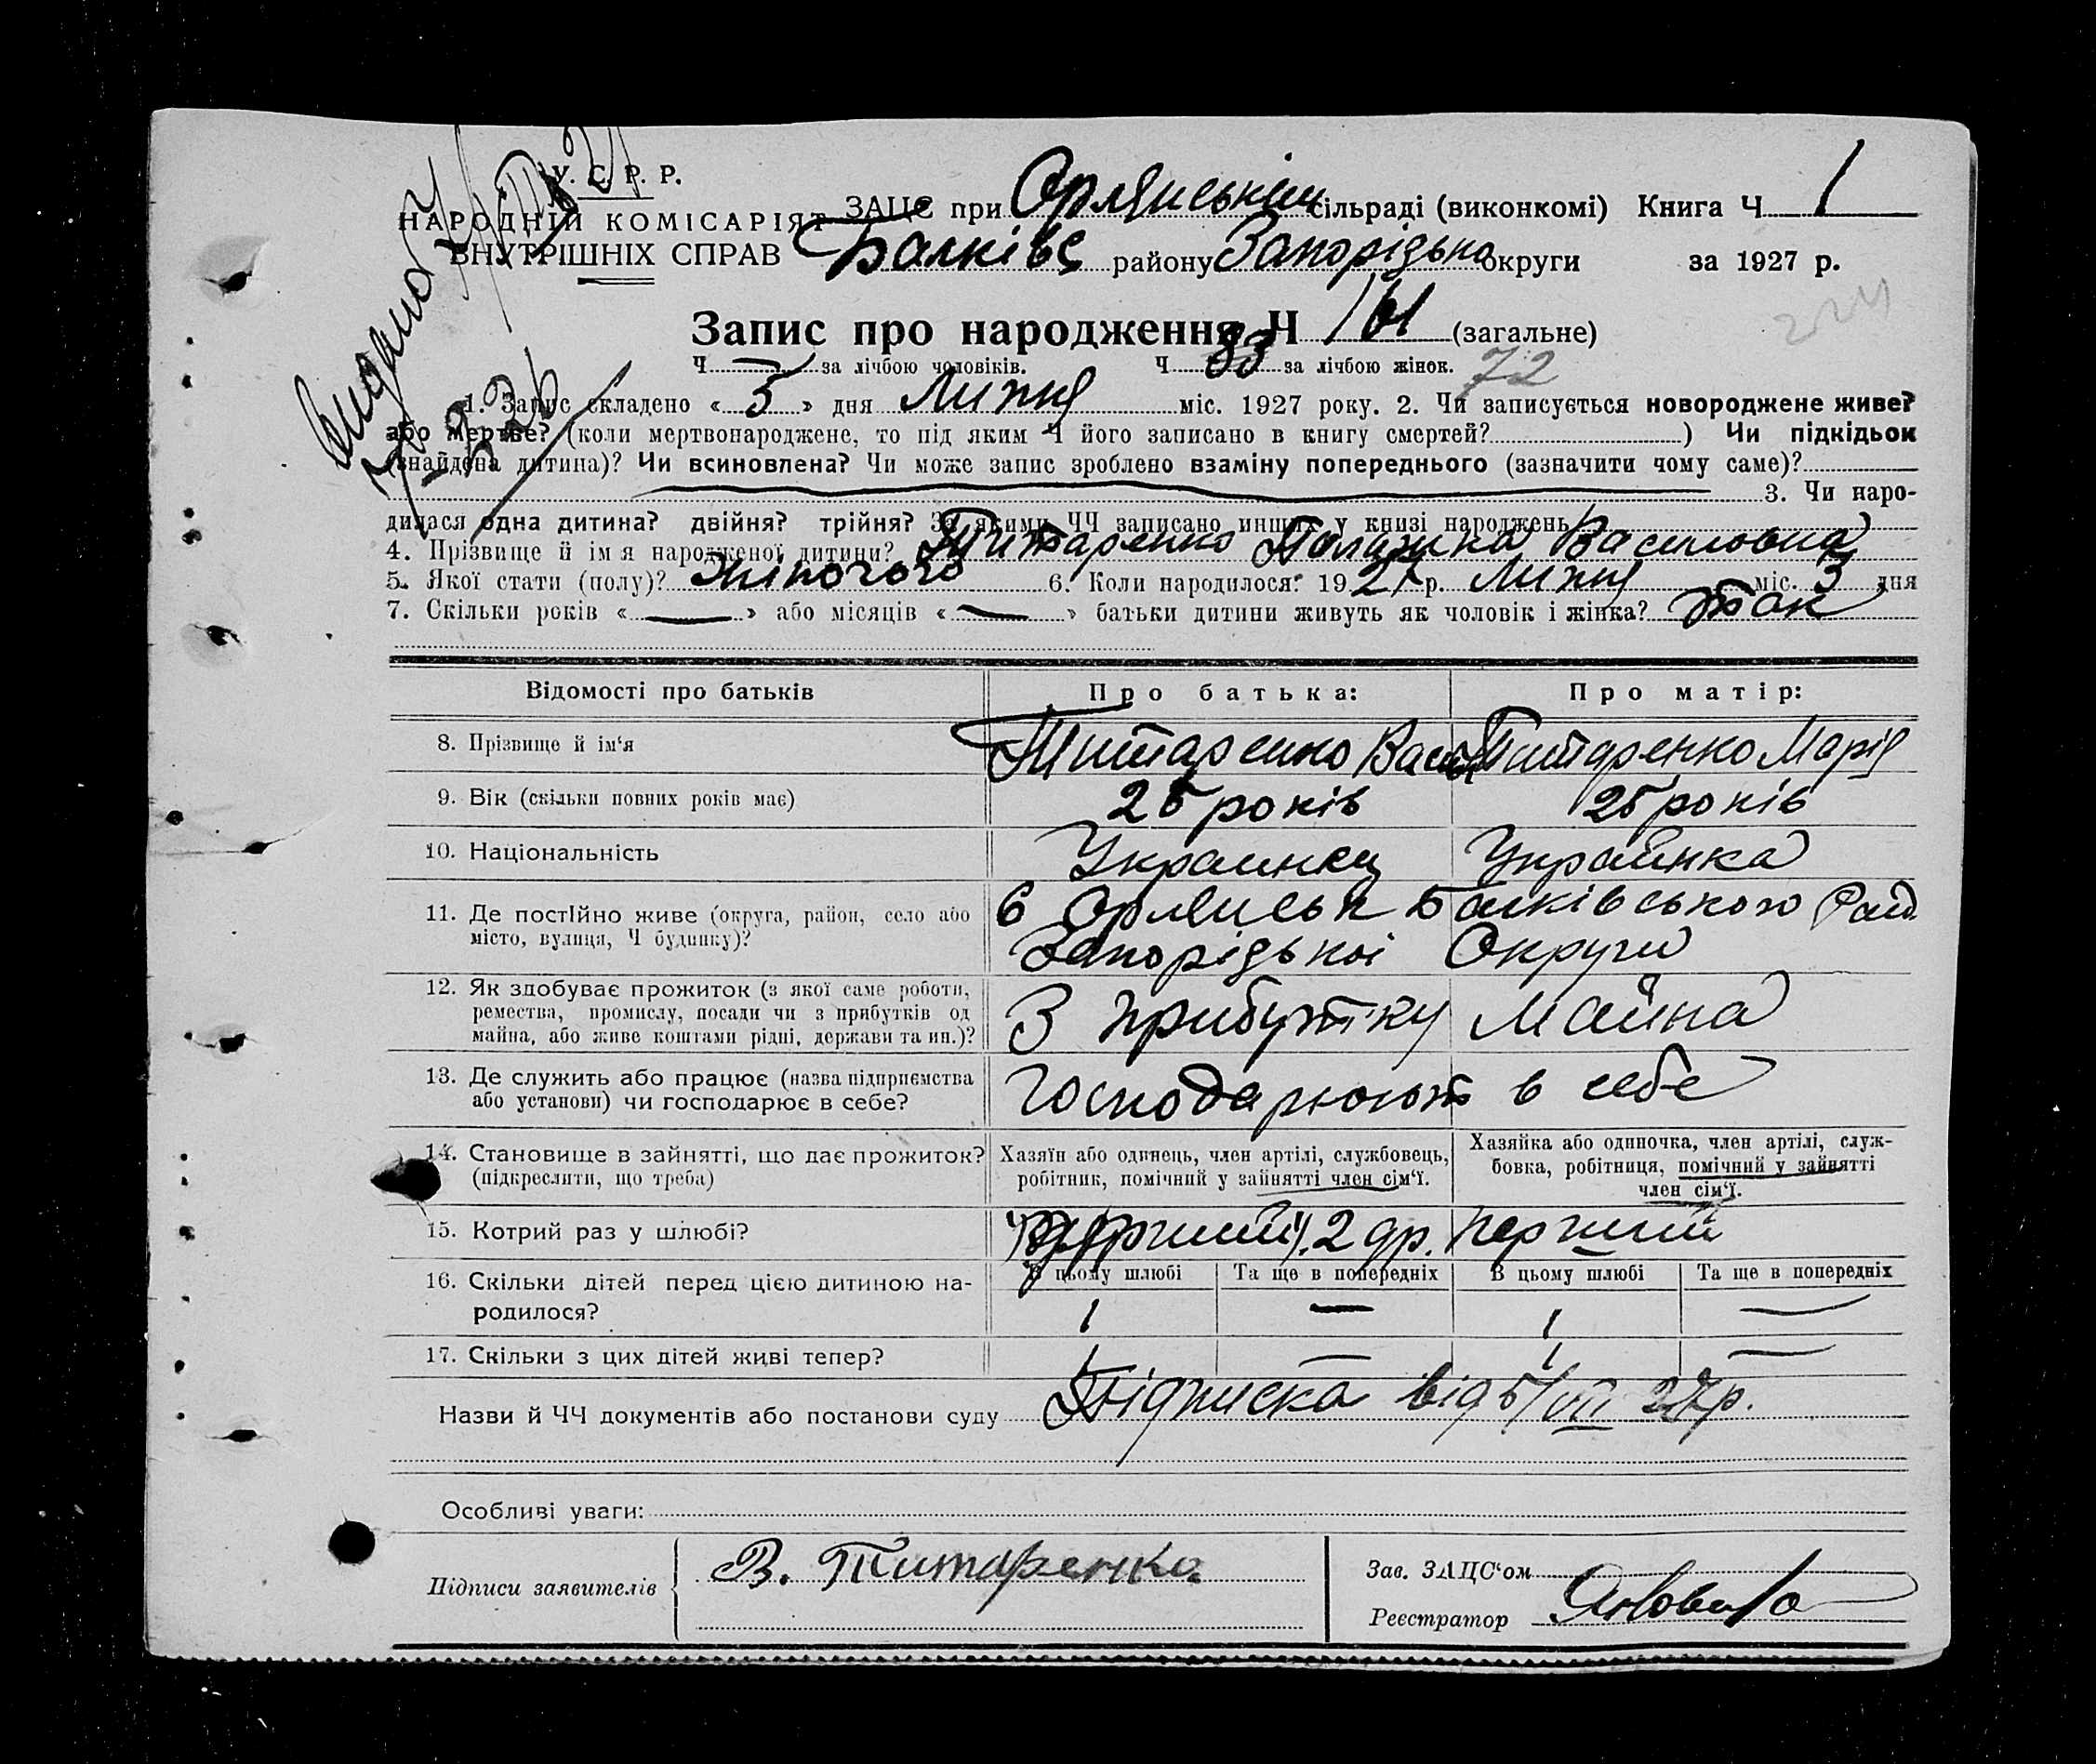 У. С. Р. Р.
НАРОДНІЙ КОМІСАРІЯТ
ВНУТРІШНІХ СПРАВ
ЗАЦС при Орлянській сільраді (виконкомі) Книга Ч 1
Балківс району Запорізько округи за 1927 р.
Видано
Запис про народження Ч 161 (загальне)
224
Ч за лічбою чоловіків. Ч 83 за лічбою жінок. 72
1. Запис складено « 5 » дня Липня міс. 1927 року. 2. Чи записується новороджене живе?
або мертве? (коли мертвонароджене, то під яким Ч його записано в книгу смертей? ) Чи підкідьок
(знайдена дитина)? Чи всиновлена? Чи може запис зроблено взаміну попереднього (зазначити чому саме)?
3. Чи наро-
дилася одна дитина? двійня? трійня? За якими ЧЧ записано инших у книзі народжень
4. Прізвище й ім'я народженої дитини? Титаренко Палажка Василовна
5. Якої стати (полу)? Жіночого 6. Коли народилося? 1927 р. Липня міс. 3 дня
7. Скільки років « — » або місяців « — » батьки дитини живуть як чоловік і жінка? так
Відомості про батьків Про батька: Про матір:
8. Прізвище й ім'я Титаренко Титаренко Марія
9. Вік (скільки повних років має) 25 років 25 років
10. Національність Украинец Украинка
11. Де постійно живе (округа, район, село або
місто, вулиця, Ч будинку)?
в Орлянськ Балківського Рай.
Запорізької Округи
12. Як здобуває прожиток (з якої саме роботи,
ремества, промислу, посади чи з прибутків од
майна, або живе коштами рідні, держави та ин.)?
З прибутку майна
13. Де служить або працює (назва підприємства
або установи) чи господарює в себе?
Господарюють в себе
14. Становище в зайнятті, що дає прожиток?
(підкреслити, що треба)
Хазяїн або одинець, член артілі, службовець,
робітник, помічний у зайнятті член сім'ї.
Хазяйка або одиночка, член артілі, служ-
бовка, робітниця, помічний у зайнятті
член сім'ї.
15. Котрий раз у шлюбі? 2 др. перший
16. Скільки дітей перед цією дитиною на-
родилося?
В цьому шлюбі Та ще в попередніх В цьому шлюбі Та ще в попередніх
1 — 1 —
17. Скільки з цих дітей живі тепер? 1 — 1 —
Назви й ЧЧ документів або постанови суду Підписка від 5/VII 27р.
Особливі уваги:
Підписи заявителів В. Титаренко
Зав. ЗАЦС'ом
Реєстратор